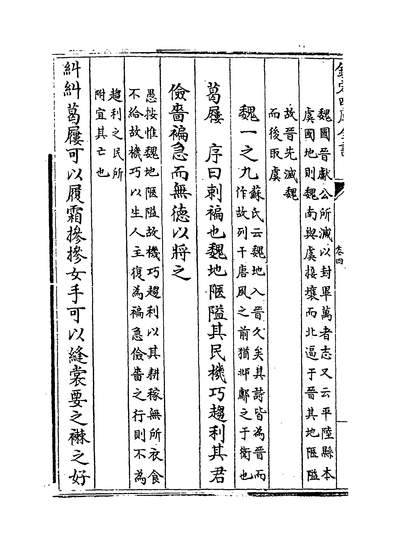 欽定四庫全書
卷四
魏國晉獻公所滅以封畢萬者志又云平陸縣本
虞國地則魏南與虞接壤而北逼于晉其地陿隘
故晉先滅魏
而後取虞
魏一之九
蘇氏云魏地入晉久矣其詩皆為晉而
作故列于唐風之前猶邶鄘之于衛也
葛屨　序曰刺褊也魏地陿隘其民機巧趨利其君
儉嗇褊急而無德以將之
愚按惟魏地陿隘故機巧趨利以其耕稼無所衣食
不給故機巧以生人主復為褊急儉嗇之行則不為
趨利之民所
附宜其亡也
糾糾葛屨可以履霜摻摻女手可以縫裳要之襋之好